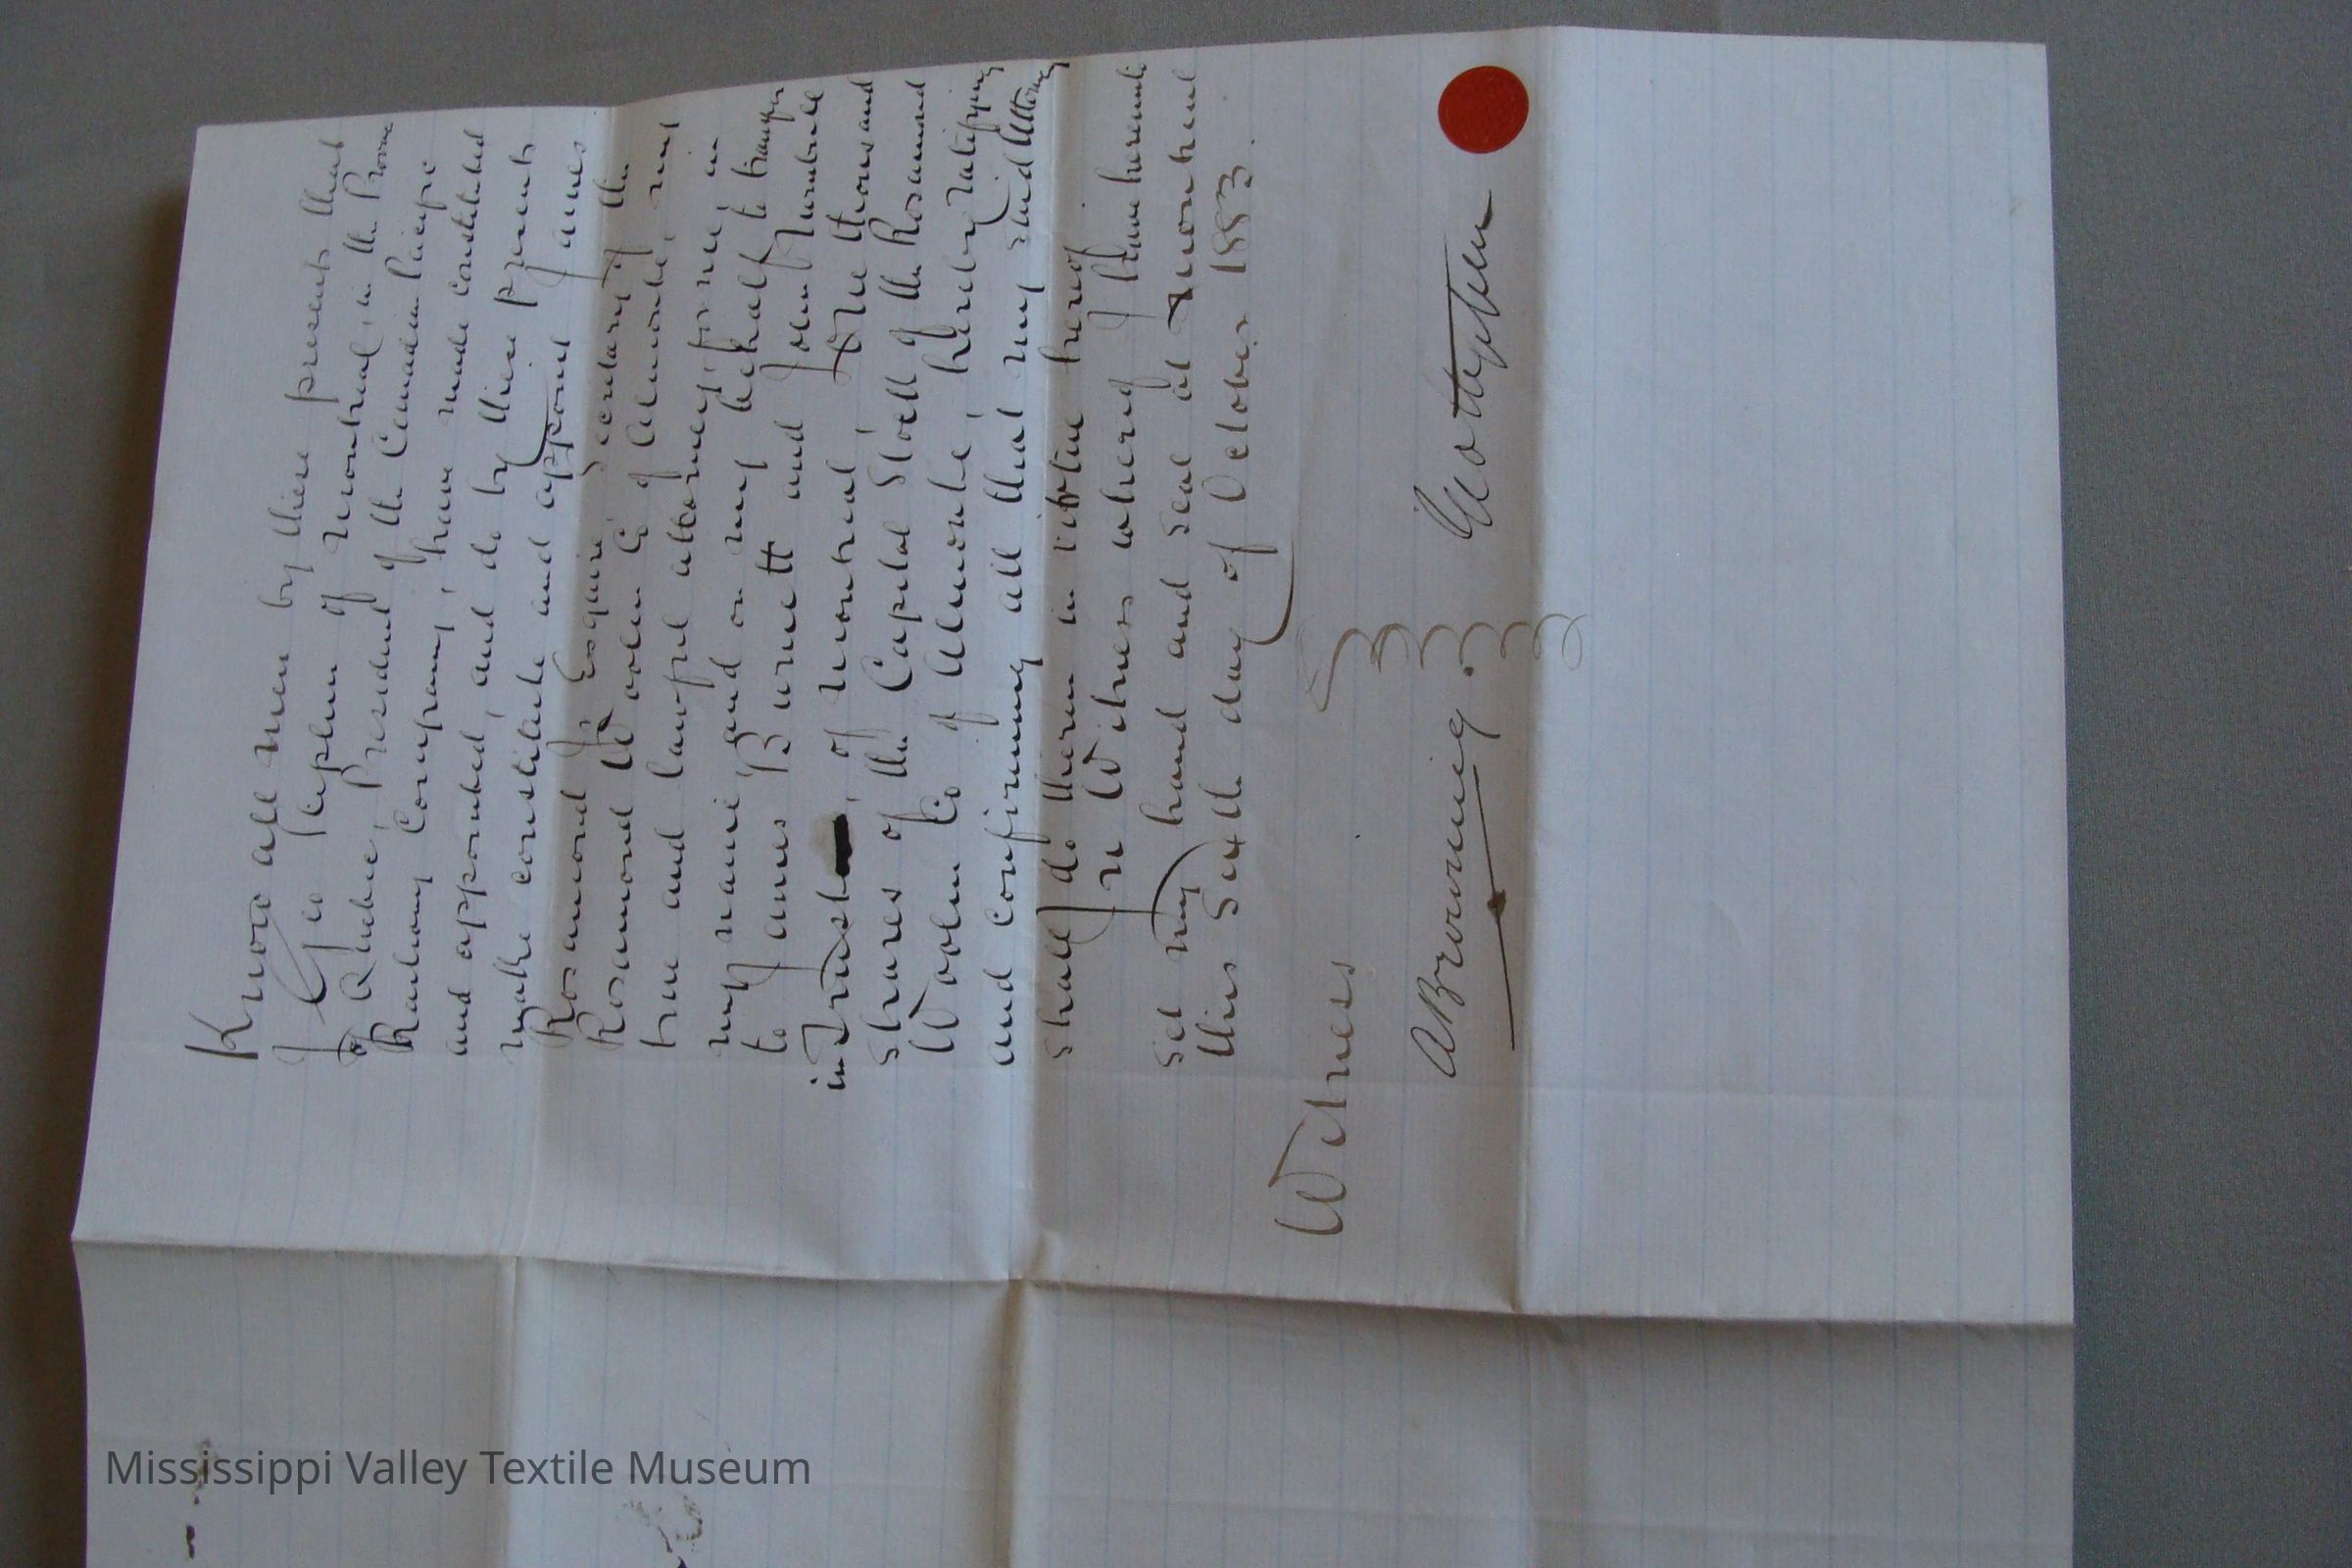 Know all men by these presents that
I Geo Stephen of Montreal, in the Province
of Quebec, President of the Canadian Pacific
Railway Company, have made constituted
and appointed, and do by these presents
make constitute and appoint James
Rosamond Jr, Esquire, Secretary of the
Rosamond Woolen Co of Almonte, my
true and lawful attorney, for me, in
my name and on my behalf, to transfer
to James Burnett and John Turnbull
in Trust, of Montreal, One thousand
shares of the Capital Stock of the Rosamond
Woolen Co of Almonte, hereby ratifying
and confirming all that my said Attorney
shall do therein in virtue hereof
In Witness whereof I have hereunto
set my hand and seal at Montreal
this Sixth day of October 1883.
Witness
ABrowning.
Geo Stephen
Mississippi Valley Textile Museum